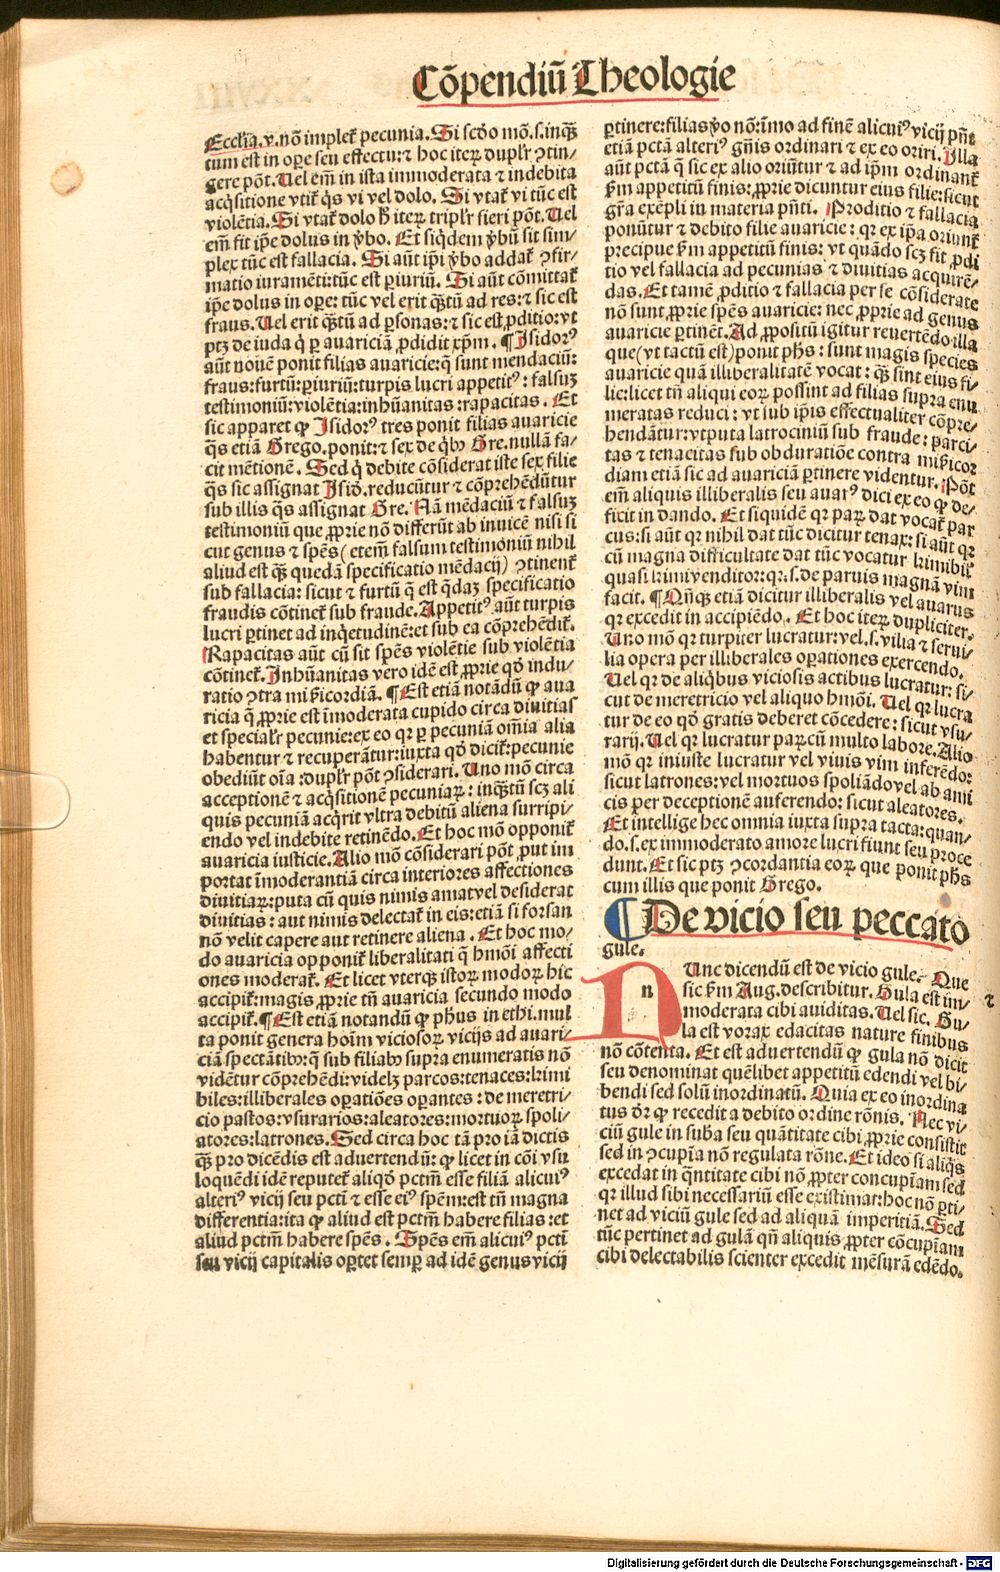 Cōpendiū Theologie
Ecclīa.v.nō implet᷑ pecunia. Si scd̓o mō.s.inqȝ
tum est in oꝑe seu effectu:⁊ hoc iteꝝ dupl'r ꝯtin-
gere pōt. Uel em̄ in ista immoderata ⁊ indebita
acq̄sitione vtit᷑ q̄s vi vel dolo. Si vtat᷑ vi tūc est
violētia. Si vtat᷑ dolo h̓ iteꝝ tripl'r fieri pōt. Uel
em̄ fit ip̄e dolus in v̓bo. Et siq̄dem v̓bū sit sim-
plex tūc est fallacia. Si aūt ip̄i v̓bo addat᷑ ꝯfir-
matio iuramēti:tūc est ꝑiuriū. Si aūt cōmittat᷑
ip̄e dolus in oꝑe: tūc vel erit q̄stū ad res:⁊ sic est
fraus. Uel erit q̄stū ad ꝑsonas:⁊ sic est ꝓditio:vt
ptȝ de iuda q̇ ꝑ auariciā ꝓdidit xp̄m. ¶Isidor᷒
aūt nouē ponit filias auaricie:q̄ sunt mendaciū:
fraus:furtū:ꝑiuriū:turpis lucri appetit᷒: falsuȝ
testimoniū:violētia:inhūanitas:rapacitas. Et
sic apparet ꝙ Isidor᷒ tres ponit filias auaricie
q̄s etiā Grego.ponit:⁊ sex de q̇bꝰ Gre.nullā fa-
cit mētionē. Sed q̇ debite cōsiderat iste sex filie
q̄s sic assignat Isid̓.reducūtur ⁊ cōprehēdūtur
sub illis q̄s assignat Gre. Nā mēdaciū ⁊ falsuȝ
testimoniū que ꝓprie nō differūt ab inuicē nisi si
cut genus ⁊ sp̄es(etem̄ falsum testimoniū nihil
aliud est q̄ȝ quedā specificatio mēdacij) ꝯtinent᷑
sub fallacia: sicut ⁊ furtū q̄ est q̄daȝ specificatio
fraudis cōtinet᷑ sub fraude. Appetit᷒ aūt turpis
lucri ꝑtinet ad inq̇etudinē:et sub ea cōprehēdit᷑.
Rapacitas aūt cū sit sp̄es violētie sub violētia
cōtinet᷑. Inhūanitas vero idē est ꝓprie qd̓ indu-
ratio ꝯtra mīẜicordiā. ¶Est etiā notādū ꝙ aua
ricia q̄ ꝓprie est īmoderata cupido circa diuitias
et special'r pecunie:ex eo qꝛ ꝑ pecuniā om̄ia alia
habentur ⁊ recuperātur:iuxta qd̓ dicit᷑:pecunie
obediūt oīa:dupl'r pōt ꝯsiderari. Uno mō circa
acceptionē ⁊ acq̄sitionē pecuniaꝝ: inq̄stū scȝ ali
quis pecuniā acq̄rit vltra debitū aliena surripi-
endo vel indebite retinēdo. Et hoc mō opponit᷑
auaricia iusticie. Alio mō cōsiderari pōt ꝓut im
portat īmoderantiā circa interiores affectiones
diuitiaꝝ:puta cū quis nimis amat vel desiderat
diuitias: aut nimis delectat᷑ in eis:etiā si forsan
nō velit capere aut retinere aliena. Et hoc mo-
do auaricia opponit᷑ liberalitati q̄ hm̄oi affecti
ones moderat᷑. Et licet vterqȝ istoꝝ modoꝝ hic
accipit᷑:magis ꝓprie tn̄ auaricia secundo modo
accipit᷑.¶Est etiā notandū ꝙ ph̄us in ethi.mul
ta ponit genera hoīm viciosoꝝ vicijs ad auari-
ciā spectātibꝰ:q̄ sub filiabꝰ supra enumeratis nō
vidētur cōprehēdi:videlȝ parcos:tenaces:kimi
biles:illiberales oꝑatiōes oꝑantes: de meretri-
cio pastos:vsurarios:aleatores:mortuoꝝ spoli-
atores:latrones. Sed circa hoc tā pro iā dictis
q̄ȝ pro dicēdis est aduertendū: ꝙ licet in cōi vsu
loquēdi idē reputet᷑ aliqd̓ pctm̄ esse filiā alicui᷒
alteri᷒ vicij seu pcti ⁊ esse ei᷒ sp̄em:est tn̄ magna
differentia:ita ꝙ aliud est pctm̄ habere filias:et
aliud pctm̄ habere sp̄es. Sp̄es em̄ alicui᷒ pcti
seu vicij capitalis oꝑtet semꝑ ad idē genus vicij
ꝑtinere:filias v̓o nō:īmo ad finē alicui᷒ vicij pn̄t
etiā pctā alteri᷒ gn̄is ordinari ⁊ ex eo oriri. Illa
aūt pctā q̄ sic ex alio oriūtur ⁊ ad ip̄m ordinant᷑
ẜm appetitū finis:ꝓprie dicuntur eius filie:sicut
gr̄a exēpli in materia pn̄ti. Proditio ⁊ fallacia
ponūtur ⁊ debito filie auaricie: qꝛ ex ip̄a oriunt᷑
precipue ẜm appetitū finis: vt quādo scȝ fit ꝓdi
tio vel fallacia ad pecunias ⁊ diuitias acquirē-
das. Et tamē ꝓditio ⁊ fallacia per se cōsiderate
nō sunt ꝓprie sp̄es auaricie: nec ꝓprie ad genus
auaricie ꝑtinēt. Ad ꝓpositū igitur reuertēdo illa
que(vt tactū est)ponit ph̄s: sunt magis species
auaricie quā illiberalitatē vocat: q̄ȝ sint eius fi-
lie:licet tn̄ aliqui eoꝝ possint ad filias supra enu
meratas reduci: vt sub ip̄is effectualiter cōpre-
hendātur:vtputa latrociniū sub fraude: parci-
tas ⁊ tenacitas sub obduratiōe contra mīẜicor
diam etiā sic ad auariciā ꝑtinere videntur. Pōt
em̄ aliquis illiberalis seu auar᷒ dici ex eo ꝙ de-
ficit in dando. Et siquidē qꝛ paꝝ dat vocat᷑ par
cus:si aūt qꝛ nihil dat tūc dicitur tenax: si aūt qꝛ
cū magna difficultate dat tūc vocatur kimibil᷒
quasi kimivenditor:qꝛ.s.de paruis magnā vim
facit. ¶Qn̄qȝ etiā dicitur illiberalis vel auarus
qꝛ excedit in accipiēdo. Et hoc iteꝝ dupliciter.
Uno mō qꝛ turpiter lucratur:vel.s.vilia ⁊ serui-
lia opera per illiberales oꝑationes exercendo.
Uel qꝛ de aliq̇bus viciosis actibus lucratur: si-
cut de meretricio vel aliquo hm̄oi. Uel qꝛ lucra
tur de eo qd̓ gratis deberet cōcedere: sicut vsu-
rarij. Uel qꝛ lucratur paꝝ cū multo labore. Alio
mō qꝛ iniuste lucratur vel viuis vim inferēdo:
sicut latrones:vel mortuos spoliādo vel ab ami
cis per deceptionē auferendo: sicut aleatores.
Et intellige hec omnia iuxta supra tacta:quan-
do.s.ex immoderato amore lucri fiunt seu proce
dunt. Et sic ptȝ ꝯcordantia eoꝝ que ponit ph̄s
cum illis que ponit Grego.
¶De vicio seu peccato
gule.
n
NUnc dicendū est de vicio gule. Que
sic ẜm Aug.describitur. Gula est im- ⁊
moderata cibi auiditas. Uel sic. Gu-
la est vorax edacitas nature finibus
nō cōtenta. Et est aduertendū ꝙ gula nō dicit
seu denominat quēlibet appetitū edendi vel bi-
bendi sed solū inordinatū. Quia ex eo inordina
tus d̓r ꝙ recedit a debito ordine rōnis. Nec vi-
ciū gule in suba seu quātitate cibi ꝓprie consistit
sed in ꝯcupīa nō regulata rōne. Et ideo si aliq̄s
excedat in q̄ntitate cibi nō ꝓpter concupīam sed
qꝛ illud sibi necessariū esse existimat:hoc nō ꝑti-
net ad viciū gule sed ad aliquā imperitiā. Sed
tūc pertinet ad gulā qn̄ aliquis ꝓpter cōcupīam
cibi delectabilis scienter excedit mēsurā edēdo.
Digitalisierung gefördert durch die Deutsche Forschungsgemeinschaft - DFG